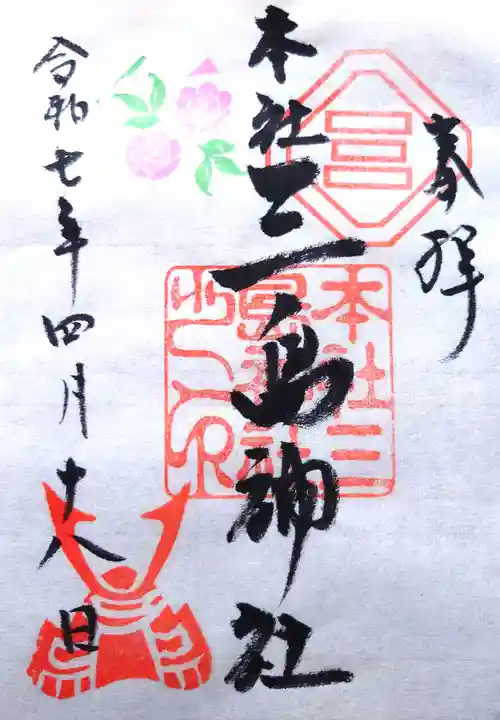 奉拝
本社三島神社
本社三
島神社
之印
令和七年四月十八日